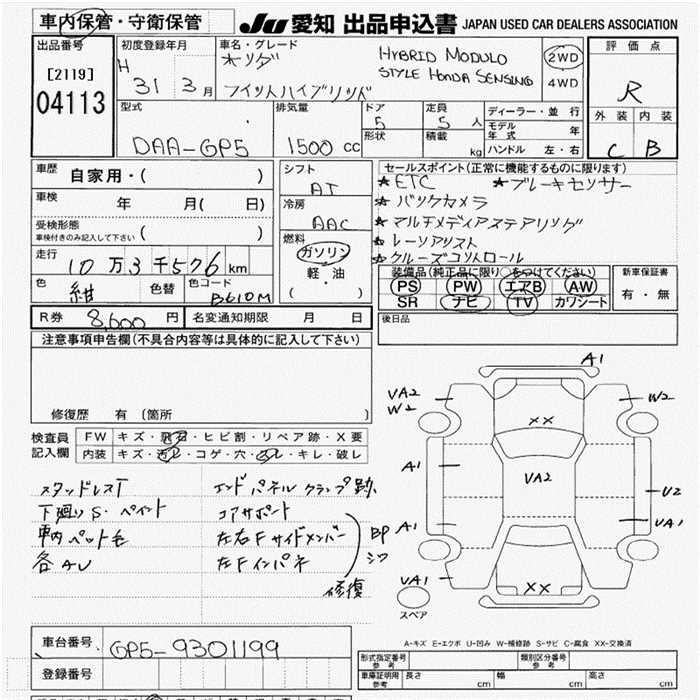 車内保管・守衛保管
JU 愛知 出品申込書 JAPAN USED CAR DEALERS ASSOCIATION
出品番号
[2119]
04113
初度登録年月
H 31 3月
車名・グレード
ホンダ
フィットハイブリッド
HYBRID MODULO
STYLE HONDA SENSING
2WD
4WD
評価点
R
外装 内装
C B
型式
DAA-GP5
排気量
1500 cc
ドア
5
形状
定員
5人
積載
kg
ディーラー・並行
モデル年式 年
ハンドル 左・右
車歴
自家用・( )
車検
年 月( 日)
受検形態
車検付きのみ記入して下さい ( )
走行
10万3千576km
色
紺
色替
色コード
B610M
シフト
AT
冷房
AAC
燃料
ガソリン
軽・油
( ・ )
セールスポイント(正常に機能するものに限ります)
★ETC ★ブレーキセンサー
★バックカメラ
★マルチメディアステアリング
★レーンアシスト
★クルーズコントロール
装備品(純正品に限り○をつけてください)
PS PW エアB AW
SR ナビ TV カワシート
新車保証書
有・無
R券 8,600円
名変通知期限 月 日
後日品
注意事項申告欄(不具合内容等は具体的に記入して下さい)
修復歴 有(箇所 )
検査員記入欄
FW キズ・飛石・ヒビ割・リペア跡・X要
内装 キズ・汚レ・コゲ・穴・スレ・キレ・破レ
スタッドレスT
下廻りS・ペイント
車内ペット毛
各AU
エンドパネルクランプ跡
コアサポート
左右Fサイドメンバー
左Fインパネ
BP
シワ
修復
A1
VA2
W2
W2
XX
A1
VA2
U2
A1
VA1
XX
VA1
スペア
A-キズ E-エクボ U-凹み W-補修跡 S-サビ C-腐食 XX-交換済
車台番号
GP5-9301199
登録番号
形式指定番号 参考
類別区分番号 参考
車庫証明用 参考
長さ cm
幅 cm
高さ cm